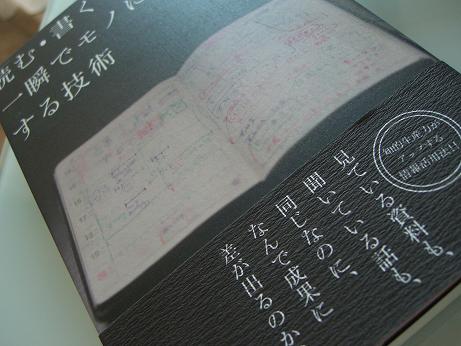 読む・書く
一瞬でモノに
する技術
知的生産力が
アップする
情報活用法!!
見ている資料も、
聞いている話も、
同じなのに、
なんで成果に
差が出るのか